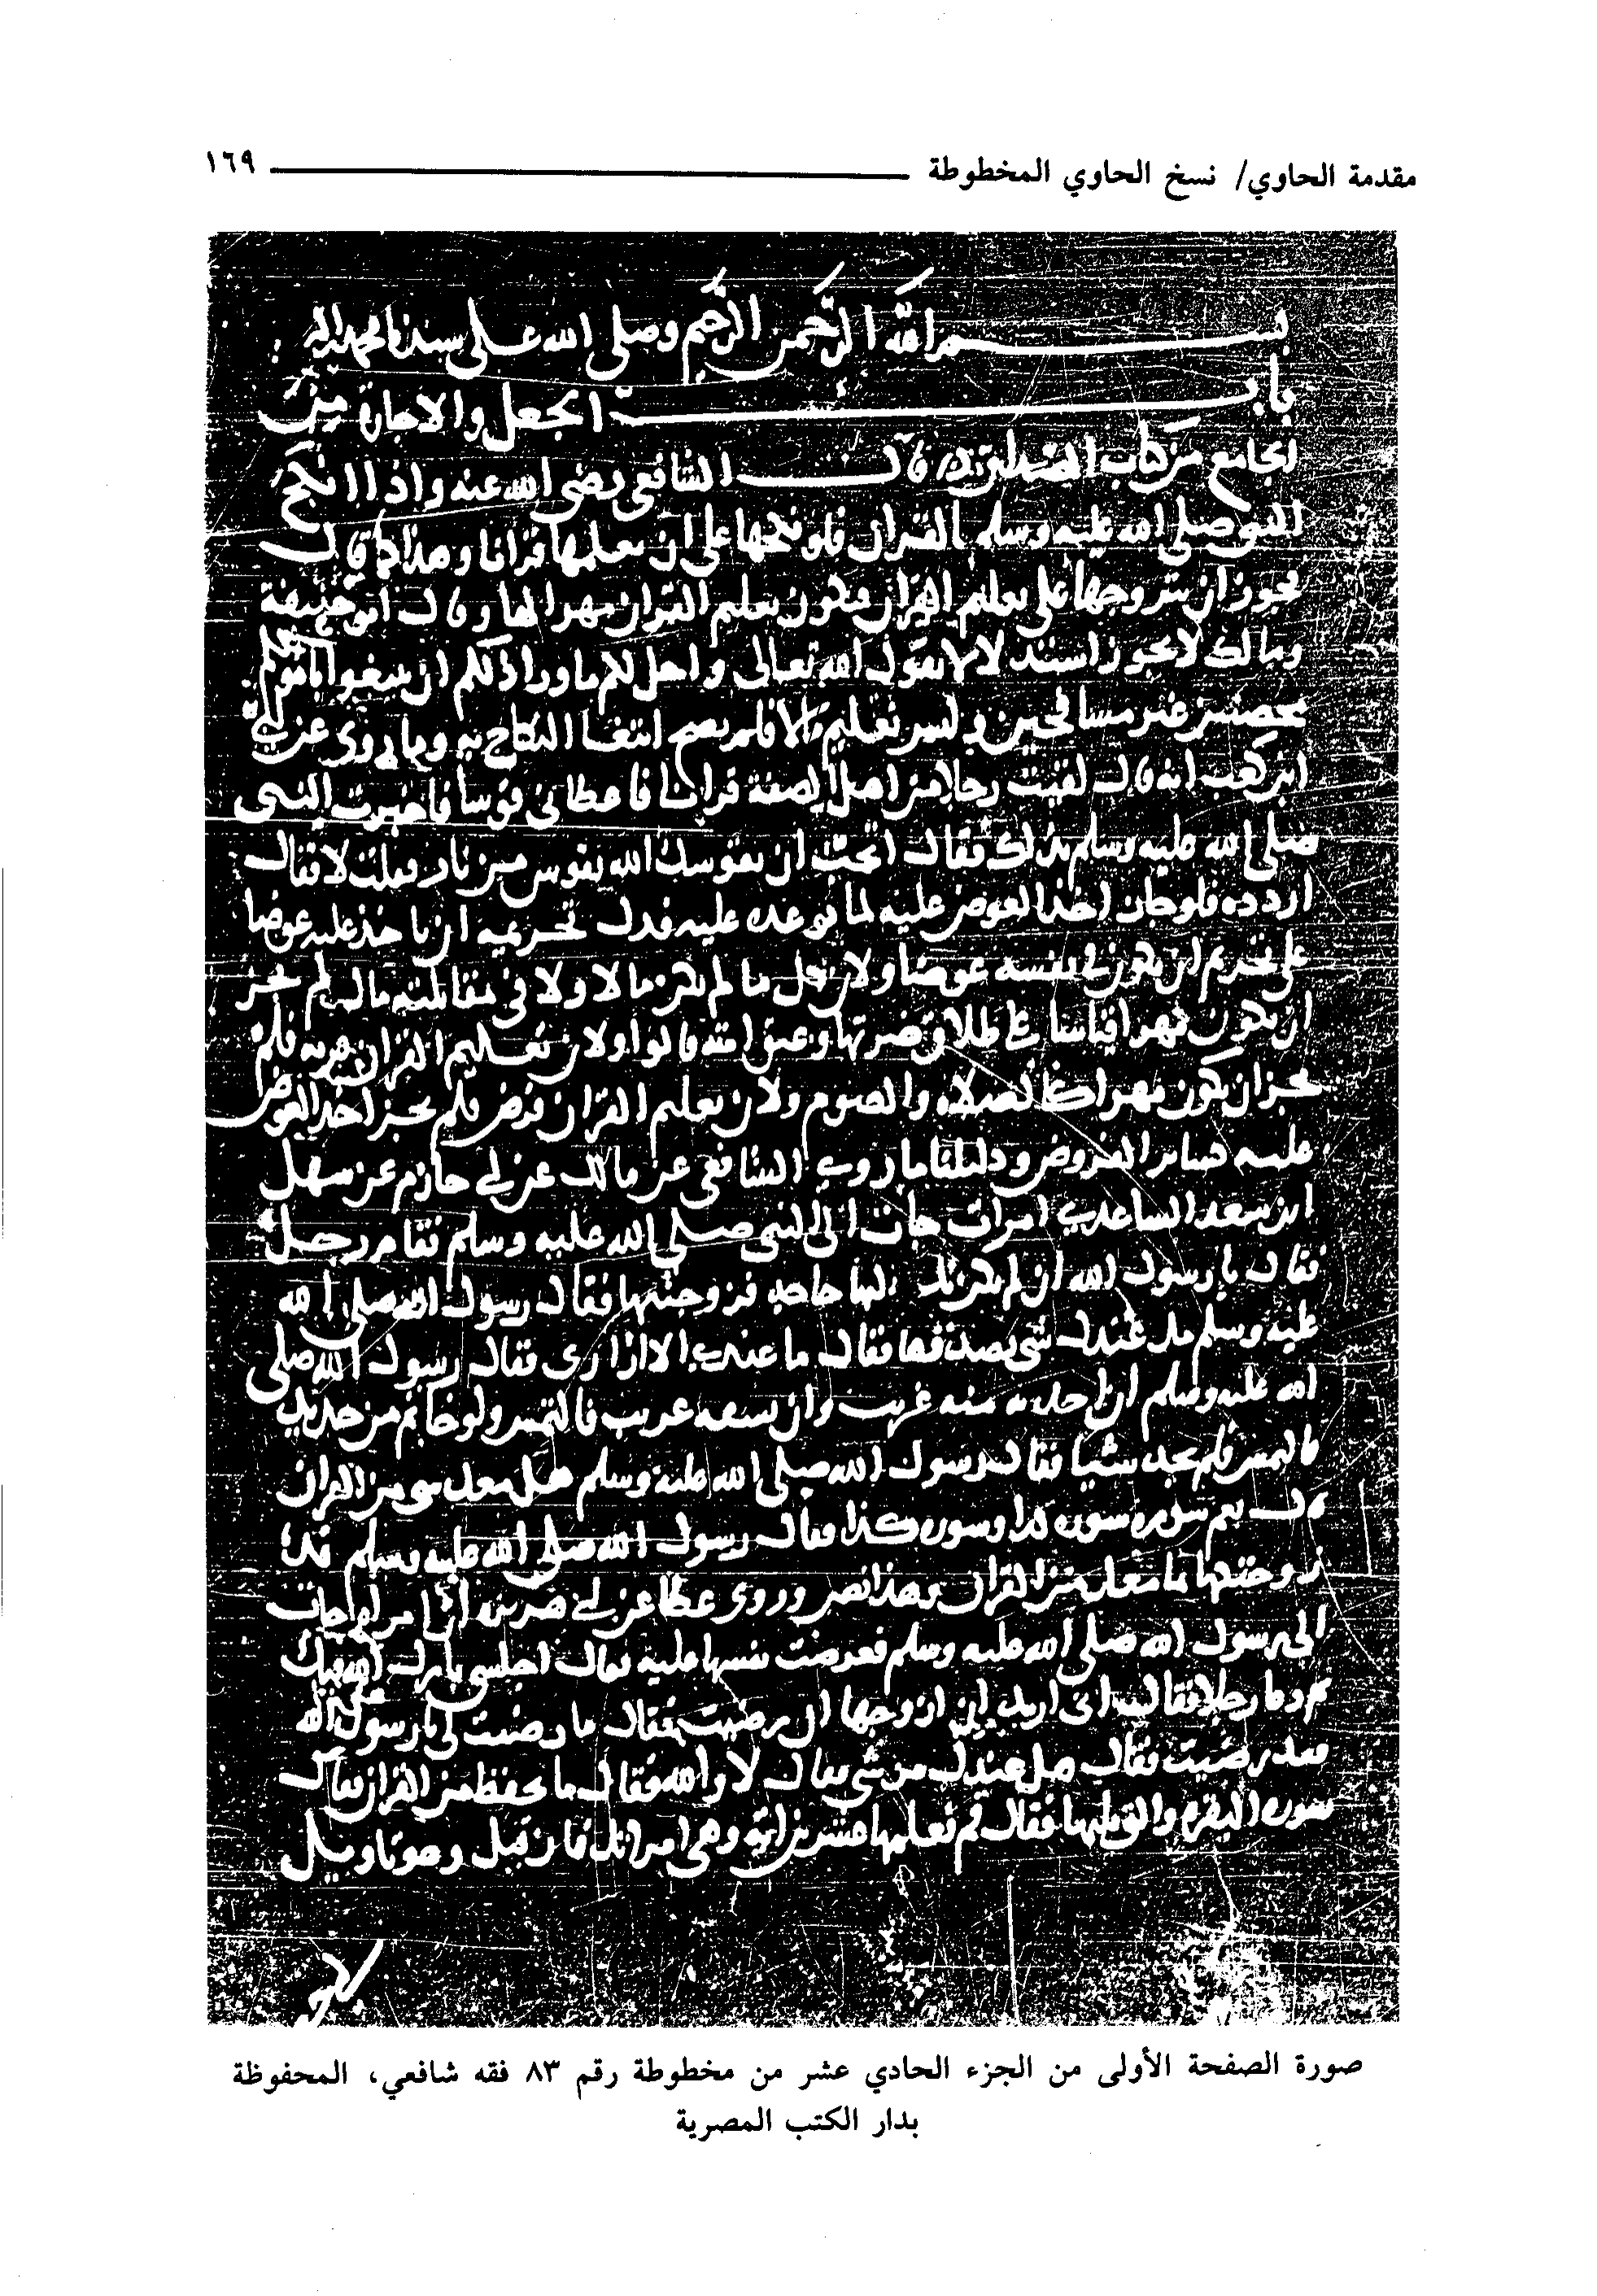 مقدمة الحاوي/ نسخ الحاوي المخطوطة ١٦٩
بسم الله الرحمن الرحيم وصلى الله على سيدنا محمد وآله
باب الجعل والاجارة من
الجامع من كتاب قال الشافعي رضى الله عنه واذا انكح
النبي صلى الله عليه وسلم بالقران فلو نكحها على ان يعلمها قرانا وهذا كما قال
يجوز ان يتزوجها على تعليم القران ويكون تعليم القران مهرا لها وقال ابو حنيفة
ومالك لا يجوز لقول الله تعالى واحل لكم ما وراء ذلكم ان تبتغوا باموالكم
محصنين غير مسافحين وليس تعليم فلم يصح ابتغا النكاح به وبما روى عن ابي
ابن كعب انه قال لقيت رجلا من اهل الصفة قرانا فاعطاني قوسا فاخبرت النبي
صلى الله عليه وسلم بذلك فقال اتحب ان يقوسك الله بقوس من نار فقلت لا فقال
اردده فلو جاز اخذ العوض عليه لما توعده عليه فدل تحريمه ان ياخذ عليه عوضا
على تحريم ان يكون في نفسه عوضا ولان كل ما لم يكن مالا ولا في مقابلته مال لم يجز
ان يكون مهرا قياسا على طلاق ضرتها وعتق امته قالوا ولان تعليم القران قربه فلم
يجز ان يكون مهرا كالصلاه والصوم ولان تعليم القران فرض فلم يجز اخذ العوض
عليه كساير الفروض ودليلنا ما روي الشافعي عن مالك عن ابي حازم عن سهل
ابن سعد الساعدي امراة جات الى النبي صلى الله عليه وسلم فقام رجل
فقال يا رسول الله ان لم يكن لك بها حاجه فزوجنيها فقال رسول الله صلى الله
عليه وسلم هل عندك شي تصدقها فقال ما عندي الا ازارى فقال رسول الله صلى
الله عليه وسلم ان فالتمس ولو خاتم من حديد
فالتمس فلم يجد شيا فقال رسول الله صلى الله عليه وسلم هل معك شي من القران
قال نعم سوره كذا وسوره كذا فقال رسول الله صلى الله عليه وسلم قد
زوجتكها بما معك من القران وهذا نص وروى عطا عن ابي هريره ان امراه جات
الى رسول الله صلى الله عليه وسلم فعرضت نفسها عليه فقال اجلسي بارك الله فيك
ثم دعا رجلا فقال اني اريد ان ازوجها ان رضيت فقال ما رضيت لي يا رسول الله
فقد رضيت فقال هل عندك من شي فقال لا والله فقال ما تحفظ من القران فقال
سوره البقره والتي تليها فقال قم فعلمها عشرين اية وهي امراتك فان قيل
صورة الصفحة الأولى من الجزء الحادي عشر من مخطوطة رقم ٨٣ فقه شافعي، المحفوظة
بدار الكتب المصرية